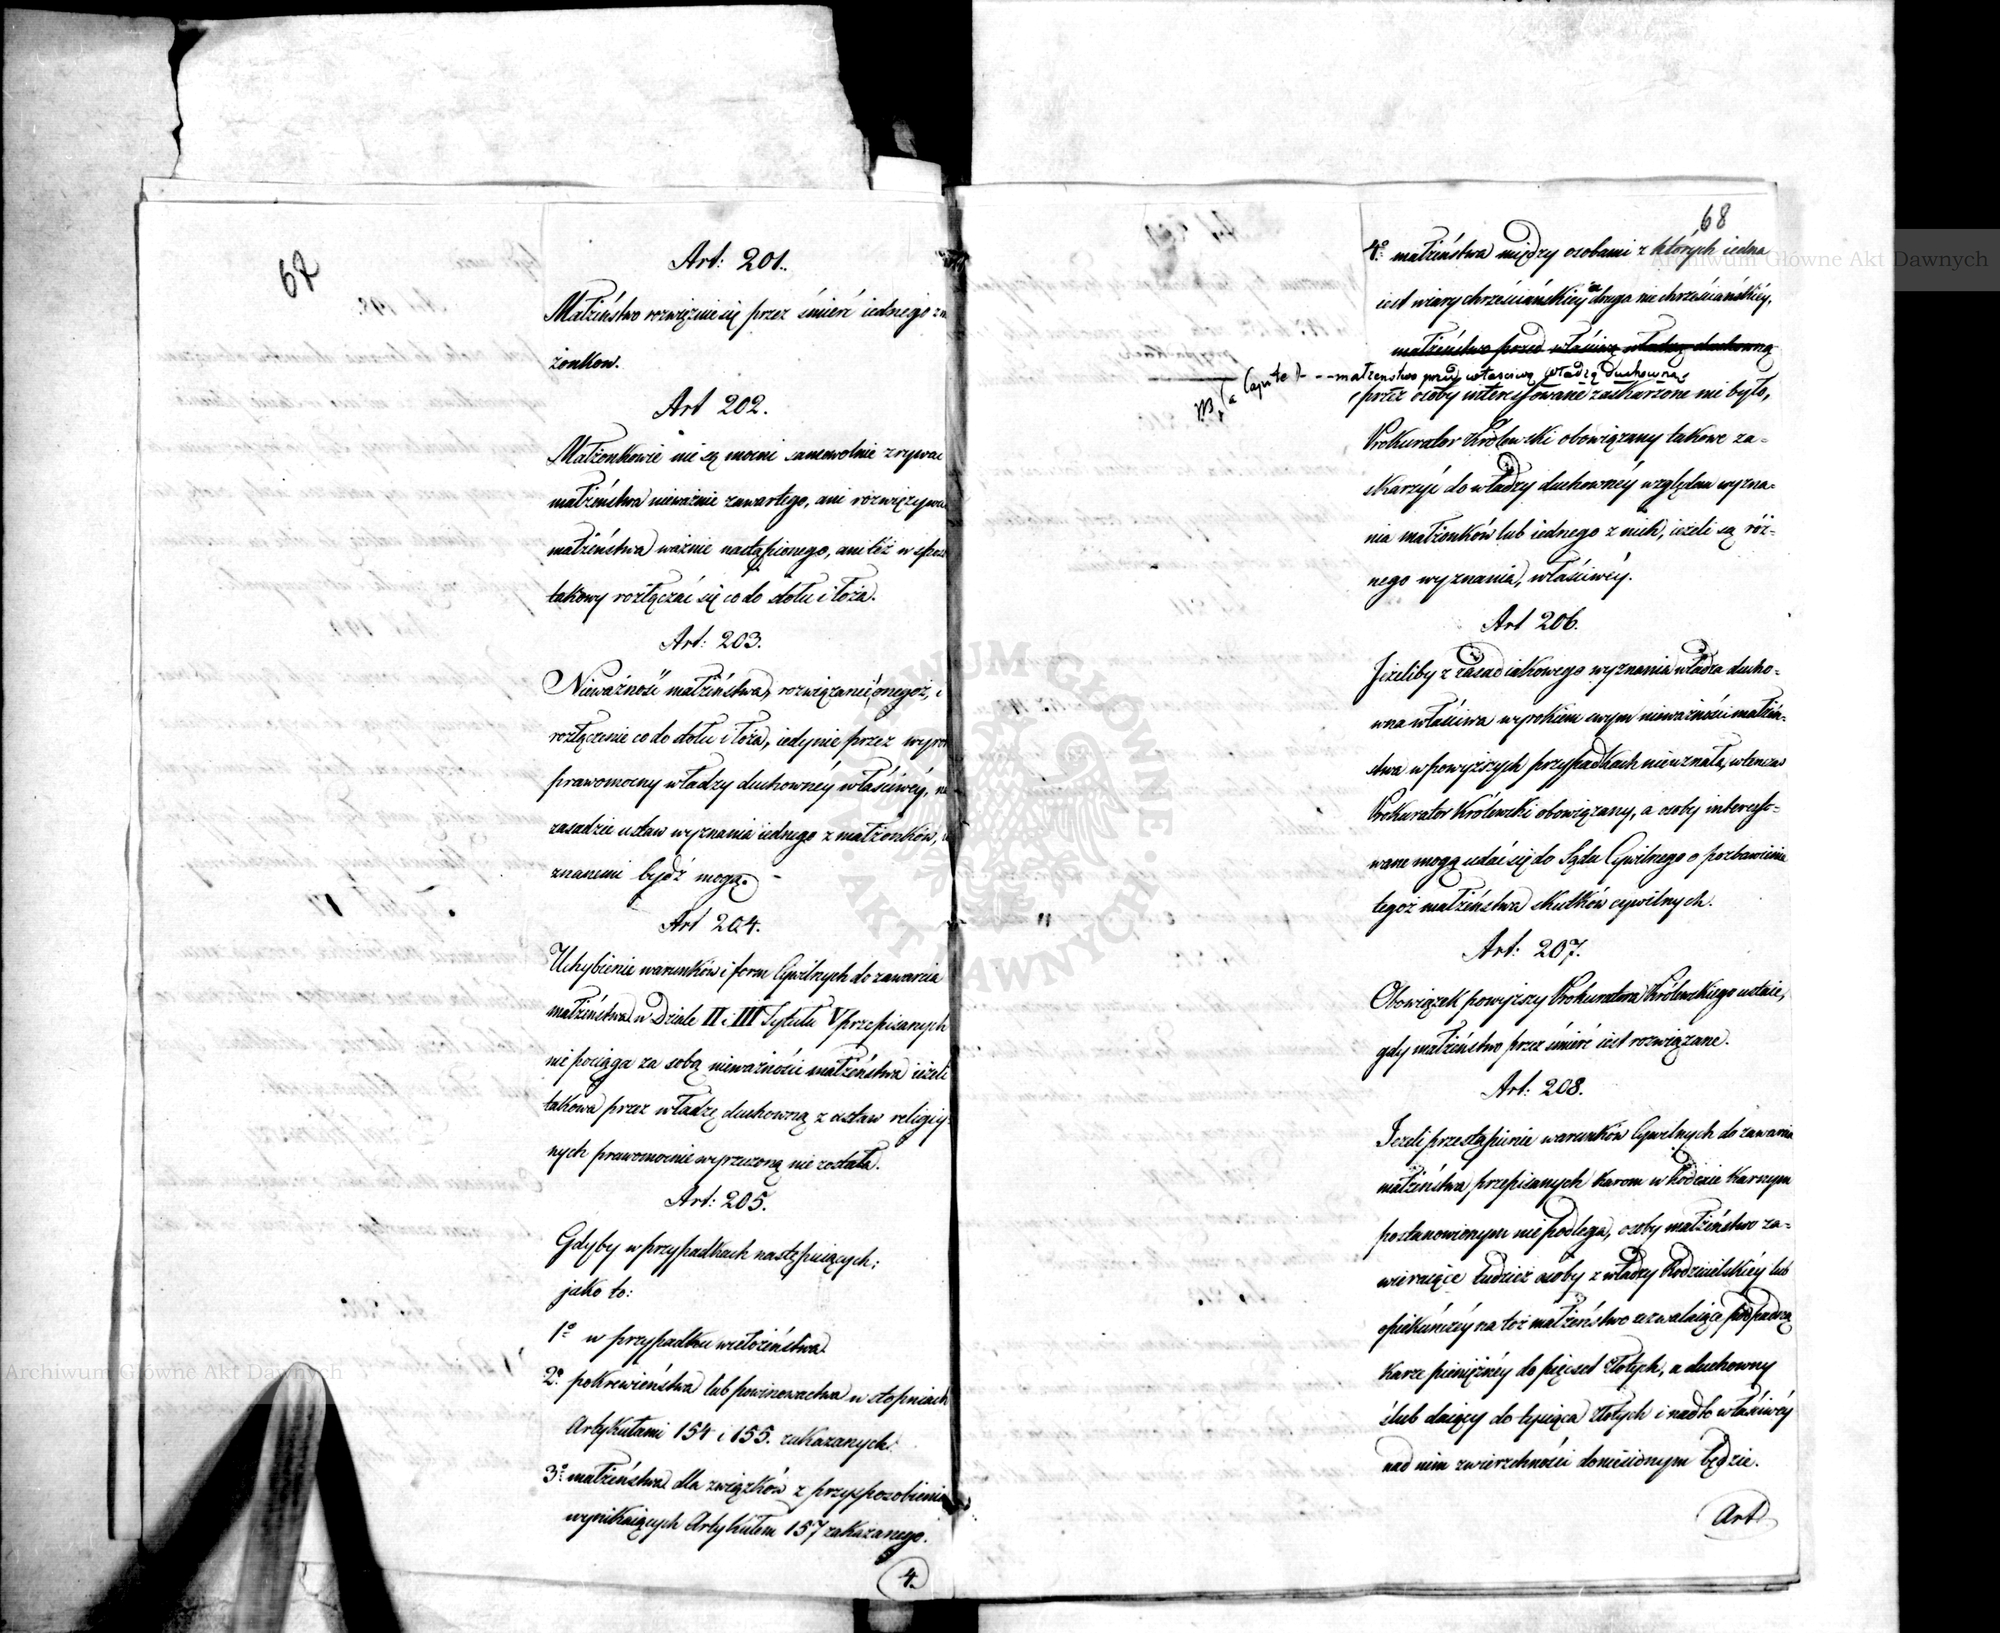 67
Art: 201.
Małżeństwo rozwięzuie się przez śmierć iednego z m
żonkow.
Art 202.
Małżonkowie nie są mocni samowolnie zrywać
małżeństwa nieważnie zawartego, ani rozwięzywa
małżeństwa ważnie nastąpionego, ani też w spos
takowy rozłączać się co do stołu i łoża.
Art: 203.
Nieważność małżeństwa, rozwiązanie onegoż, i
rozłączenie co do stołu i łoża, iedynie przez wyrok
prawomocny władzy duchownéy właściwéy, na
zasadzie ustaw wyznania iednego z małżonków, u
znanemi bydź mogą. -
Art 204.
Uchybienie warunków i form Cywilnych do zawarcia
małżeństwa w Dziale II i III Tytułu V przepisanych
nie pociąga za sobą nieważności małżeństwa ieżeli
takowa przez władzę duchowną z ustaw religiy-
nych prawomocnie wyrzeczoną nie została.
Art: 205.
Gdyby w przypadkach następuiących;
jako to:
1o w przypadku wielożeństwa
2o pokrewieństwa lub powinowactwa w stopniach
Artykułami 154 i 155. zakazanych.
3o małżeństwa dla związków z przysposobienia
wynikaiących Artykułem 157 zakazanego.
4.
68
4o małżeństwa między osobami z których iedna
iest wiary chrześciańskiey a druga nie chrześciańskiéy,
małżeństwo przed właściwą władzą duchowną
(a Capite) - - - małżenstwo przed właściwą Władzą Duchowną
przez osoby interessowane zaskarżone nie było,
Prokurator Królewski obowiązany takowe za-
skarżyć do władzy duchownéy względem wyzna-
nia małżonków lub iednego z nich, ieżeli są róż-
nego wyznania, właściwéy.
Art 206.
Jeżeliby z zasad iakowego wyznania władza ducho-
wna właściwa wyrokiem swym nieważności małżeń-
stwa w powyższych przypadkach nie uznała, wtenczas
Prokurator Królewski obowiązany, a osoby interesso-
wane mogą udać się do Sądu Cywilnego o pozbawienie
tegoż małżeństwa skutków cywilnych.
Art: 207.
Obowiązek powyższy Prokuratora Królewskiego ustaie,
gdy małżeństwo przez śmierć iest rozwiązane.
Art: 208.
Jeżeli przestąpienie warunków Cywilnych do zawarcia
małżeństwa przepisanych karom w kodexie karnym
postanowionym nie podlega, osoby małżeństwo za-
wieraiące tudzież osoby z władzy Rodzicielskiéy lub
opiekuńczéy na toż małżeństwo zezwalaiące podpadną
karze pieniężnéy do pięciuset Złotych, a duchowny
ślub daiący do tysiąca Złotych i nadto właściwéy
nad nim zwierzchności doniesionym będzie.
Art
Archiwum Główne Akt Dawnych
Archiwum Główne Akt Dawnych
ARCHIWUM GŁÓWNE · AKT DAWNYCH ·